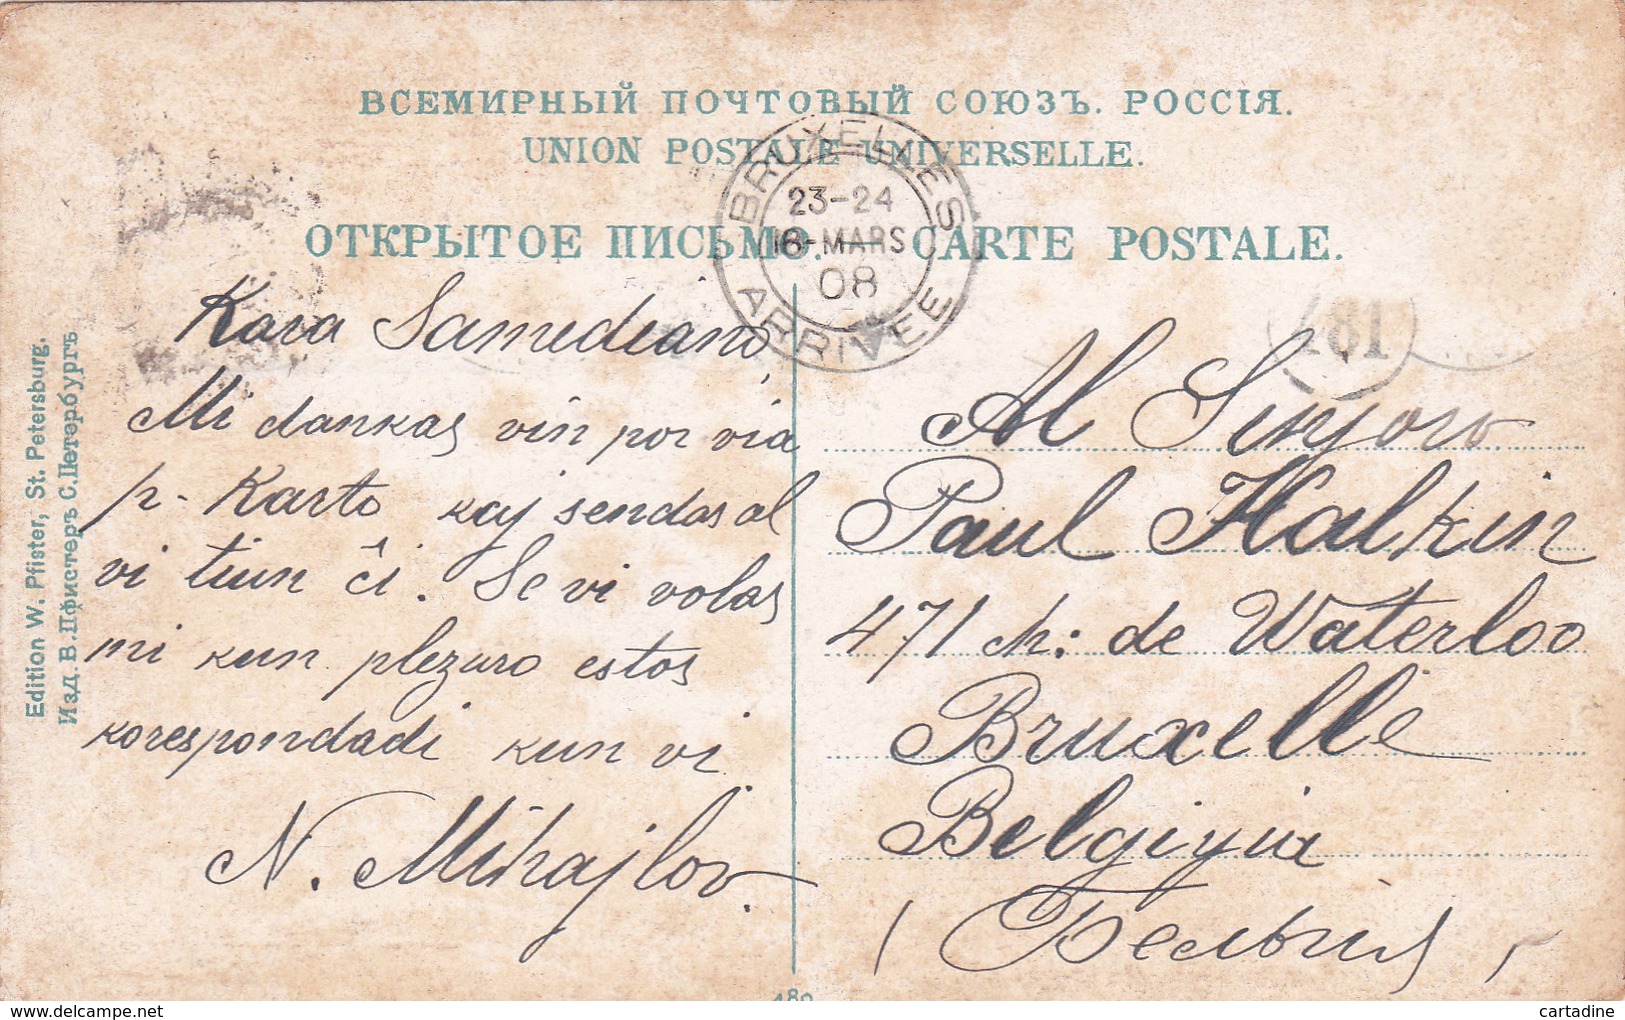 ВСЕМІРНЫЙ ПОЧТОВЫЙ СОЮЗЪ. РОССІЯ.
UNION POSTALE UNIVERSELLE.
ОТКРЫТОЕ ПИСЬМО. — CARTE POSTALE.
BRUXELLES
23-24
MARS
08
ARRIVÉE
Kara Samideano
Mi dankas vin por via
p-Karto kaj sendas al
vi tiun ĉi. Se vi volas
mi kun plezuro estos
korespondadi kun vi
N. Mihajlov.
Al Sinyoro
Paul Halkin
471 ch: de Waterloo
Bruxelle
Belgiyia
(Бельгия)
Edition W. Pfister, St. Petersburg.
Изд. В. Пфистеръ С.Петербургъ
cartadine